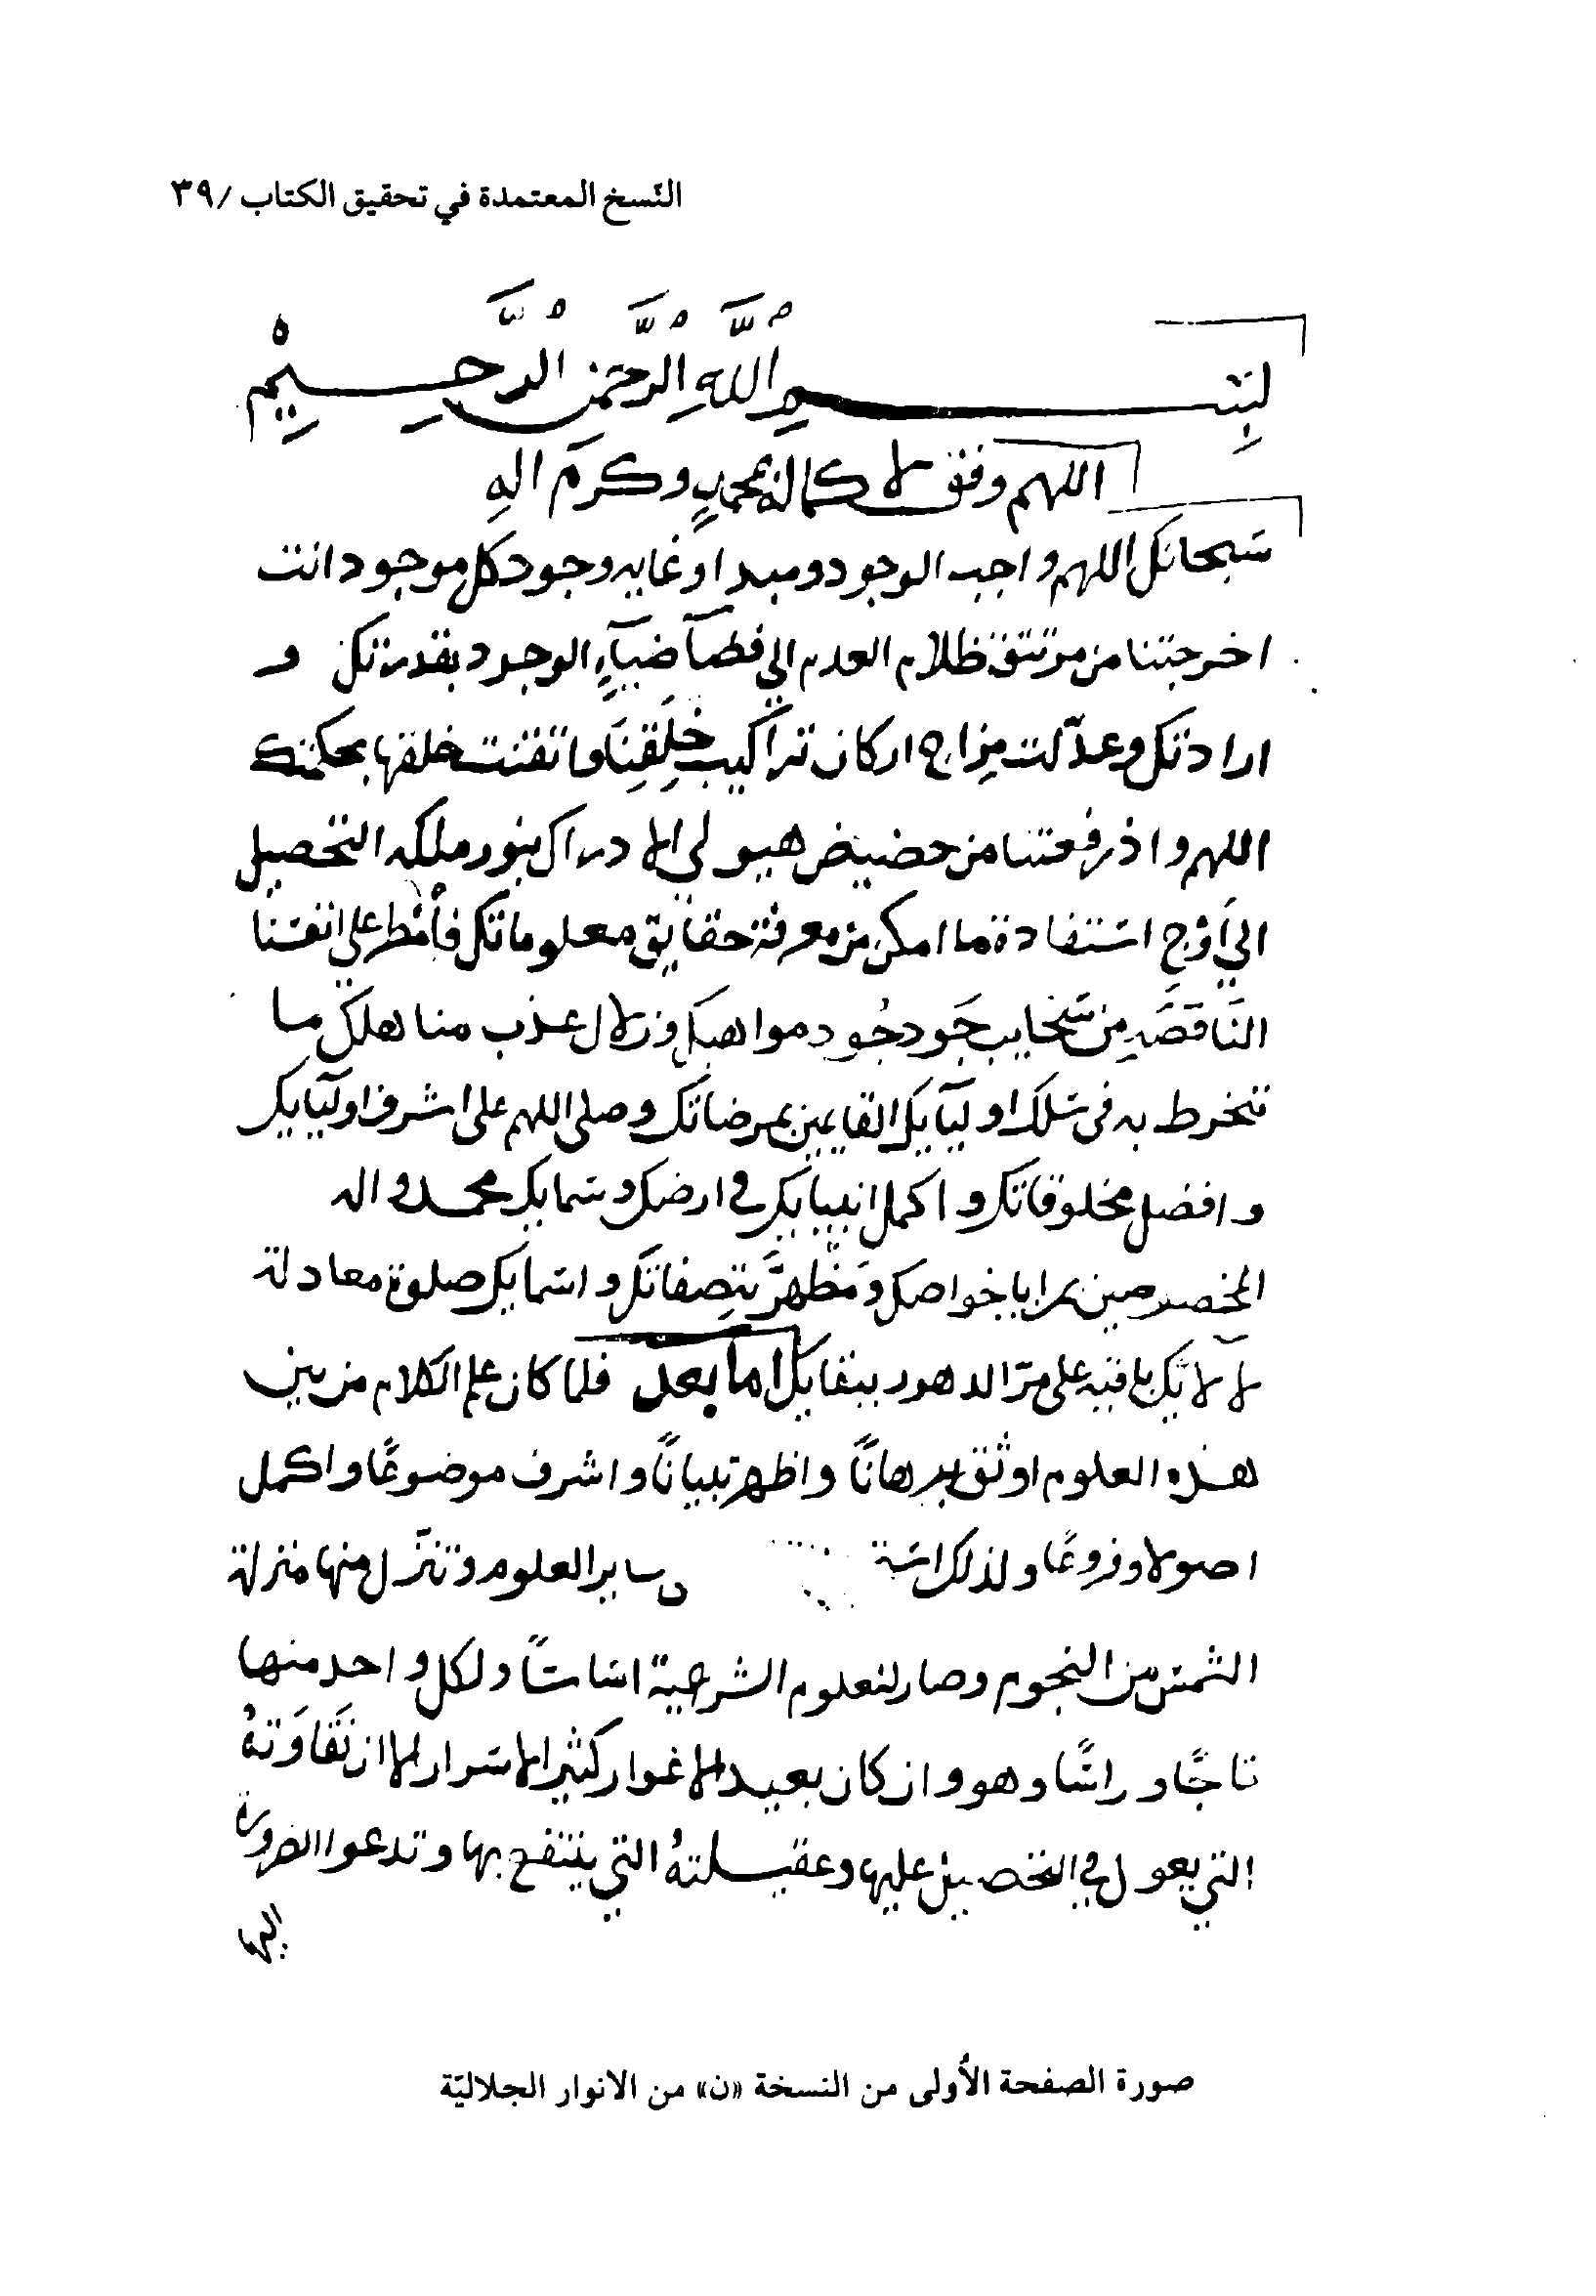 النّسخ المعتمدة في تحقيق الكتاب /٣٩
بِسْمِ اللَّهِ الرَّحْمَنِ الرَّحِيمْ
اللهم وفق لاكماله بمحمدٍ وكرَم الهِ
سَبحانك اللهم واجب الوجود ومبداوغايه وجود كل موجود انت
اخرجتنا من مرتتق ظلام العدم الي فضآ ضيآءِ الوجود بقدرتك و
ارادتك وعدّلت مِزاج اركان تراكيب خِلَقِنَا واتقنت خلقها بحكمتك
اللهم واذ رفعتنا من حضيض هيولي الادراك بنور ملكه التحصيل
الي أَوْجِ استفادة ما امكن من معرفة حقايق معلوماتك فأَمْطر علي انفسنا
النَاقصَهِ من سَحايب جَود جُود مواهبك وزلال عذب مناهلك ما
ننخرط به في سَلك اوليآيك القايمين بمرضاتك وصلي اللهم علي اشرف اوليآيك
وافضل مخلوقاتك واكمل انبيايك في ارضك وسمايك محمد واله
المخصوصين بمزايا خواصك ومَظْهرَيّتِ صفاتك واسمايك صلوة معادلة
لآلايك باقيه علي مرّ الدهور ببقايك اما بعد فلما كان علم الكلام من بين
هذه العلوم اوثق برهانًا واظهر تبيانًا واشرف موضوعًا واكمل
اصولا وفروعًا ولذلك سايرالعلوم وتنزّل منها منزلة
الشمس من النجوم وصار لعلوم الشرعية اساسًا ولكل واحد منها
تاجًا وراسًا وهو وان كان بعيد الاغوار كثير الاسرار الاان نَقَاوَتهُ
التي يعول في التحصيل عليها وعقيلتهُ التي ينتفع بها وتدعوا الضرورة
اليها
صورة الصفحة الأولى من النسخة «ن» من الانوار الجلاليّة